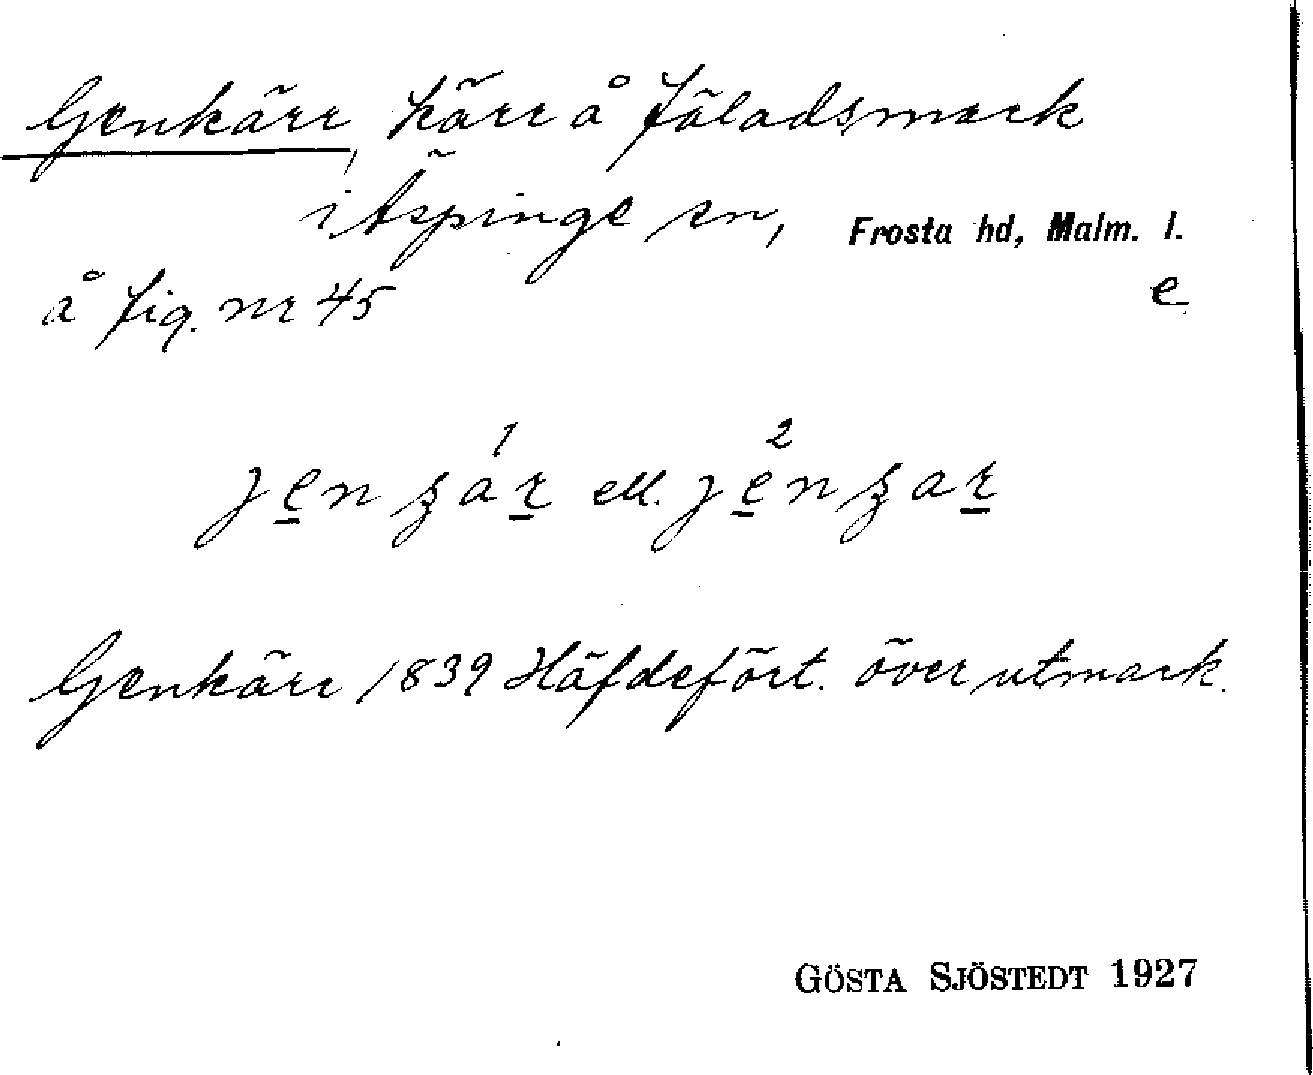 Genkärr, kärr å fäladsmark
i Äspinge sn, Frosta hd, Malm. l.
å fig. nr 45 e
ell.
Genkärr 1839 Häfdefört. över utmark.
GÖSTA SJÖSTEDT 1927